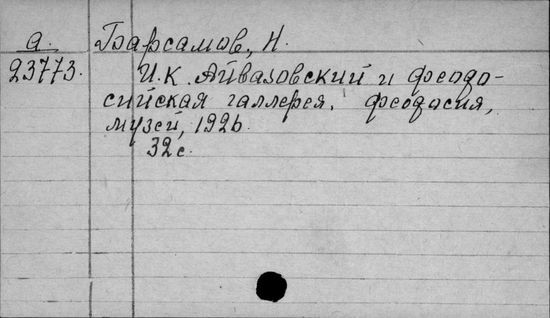 а. Барсамов, Н.
23773. И.К. Айвазовский и феодо-
сийская галлерея. Феодосия,
музей, 1926.
32 с.